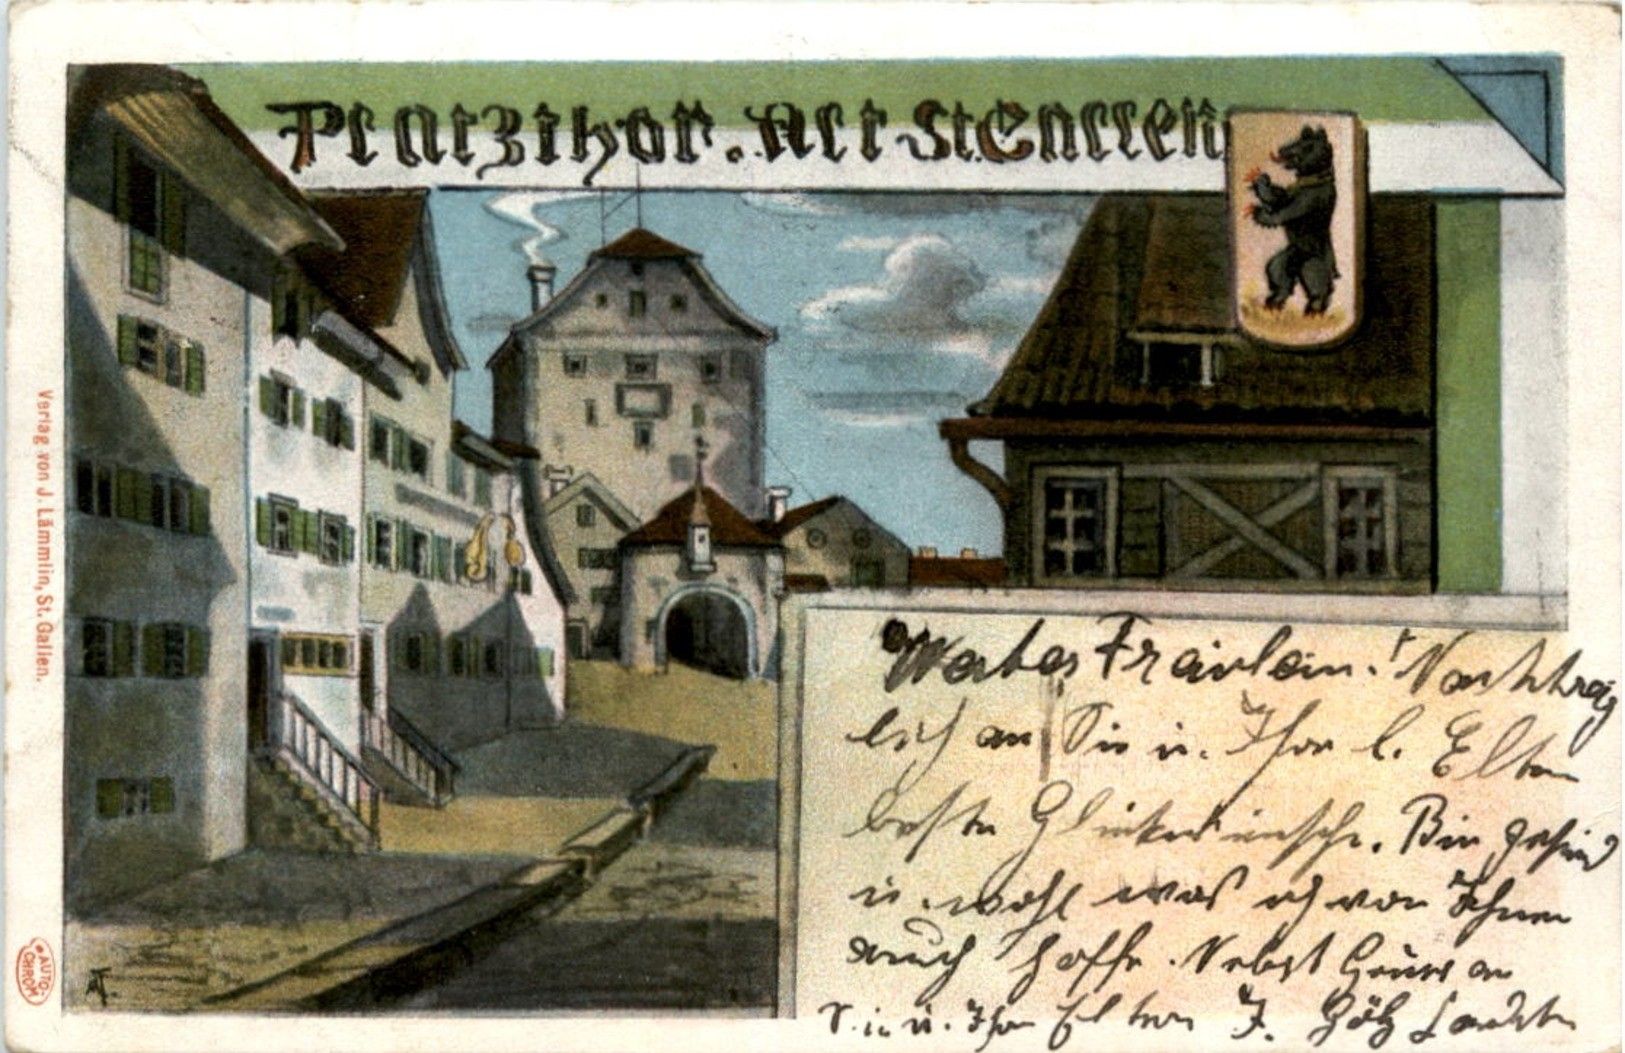 Platzthor. Alt St. Gallen
Wertes Fräulein! Nachträg
lich an Sie u. Ihre l. Eltern
beste Glückwünsche. Bin gesund
u. wohl was ich von Ihnen
auch hoffe. Nebst Gruss an
Sie u. Ihre Eltern J. Gölz
Verlag von J. Lämmlin, St. Gallen.
AUTO-
CHROM